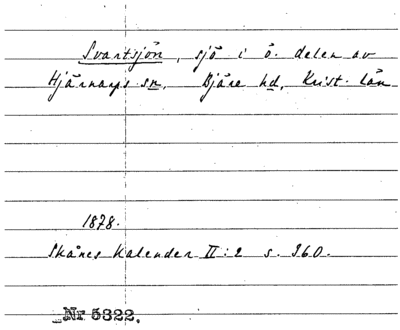 Svartsjön, sjö i ö. delen av
Hjärnarps sn. Bjäre hd, Krist. län
1878.
Skånes Kalender II:2 s. 360.
Nr 5322.